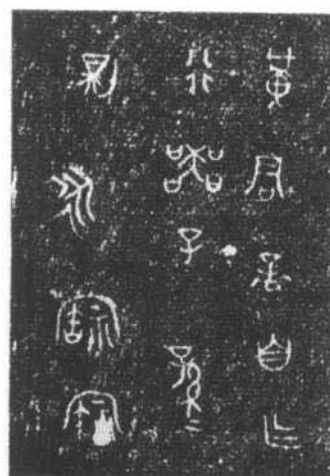 黃君孟自乍
行器子孫=
則永祜福